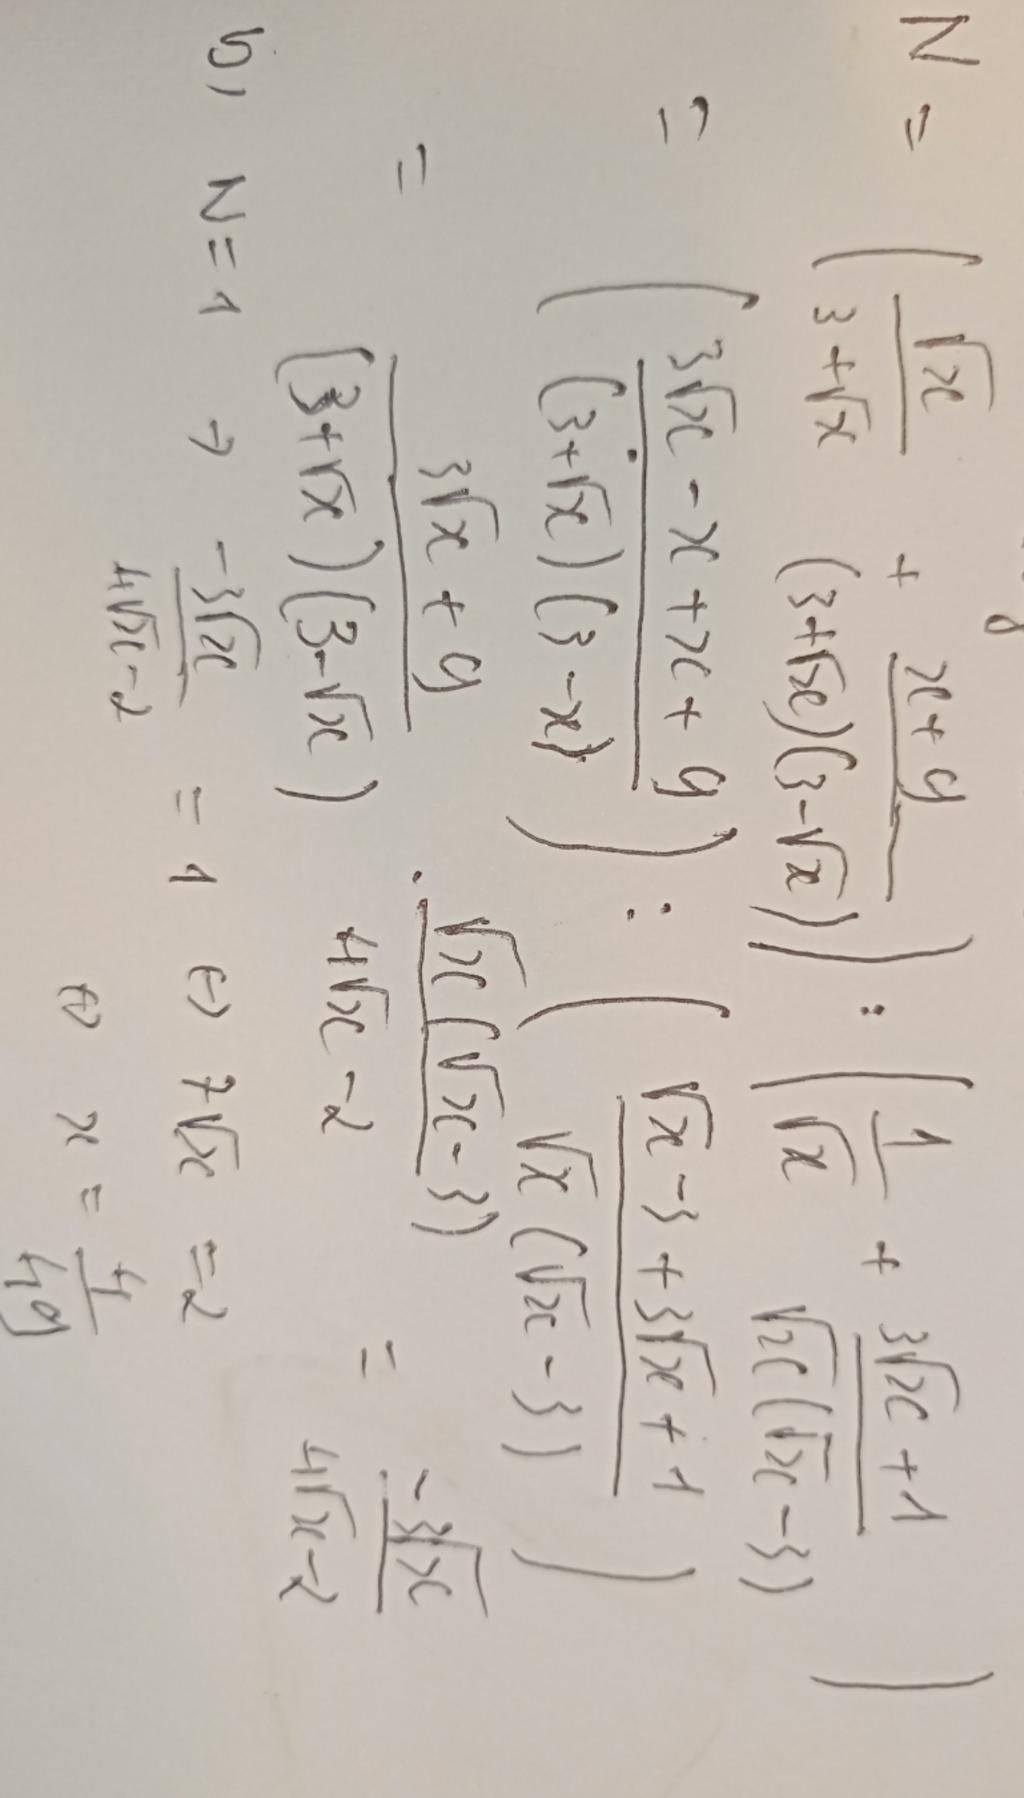 N = ( √x / (3+√x) + (x+9) / ((3+√x)(3-√x)) ) : ( 1/√x + (3√x+1) / (√x(√x-3)) )
= ( (3√x - x + x + 9) / ((3+√x)(3-x)) ) : ( (√x-3+3√x+1) / (√x(√x-3)) )
= (3√x+9) / ((3+√x)(3-√x)) . √x(√x-3) / (4√x-2) = -3√x / (4√x-2)
b, N=1 → -3√x / (4√x-2) = 1 ⇔ 7√x = 2
⇔ x = 4/49